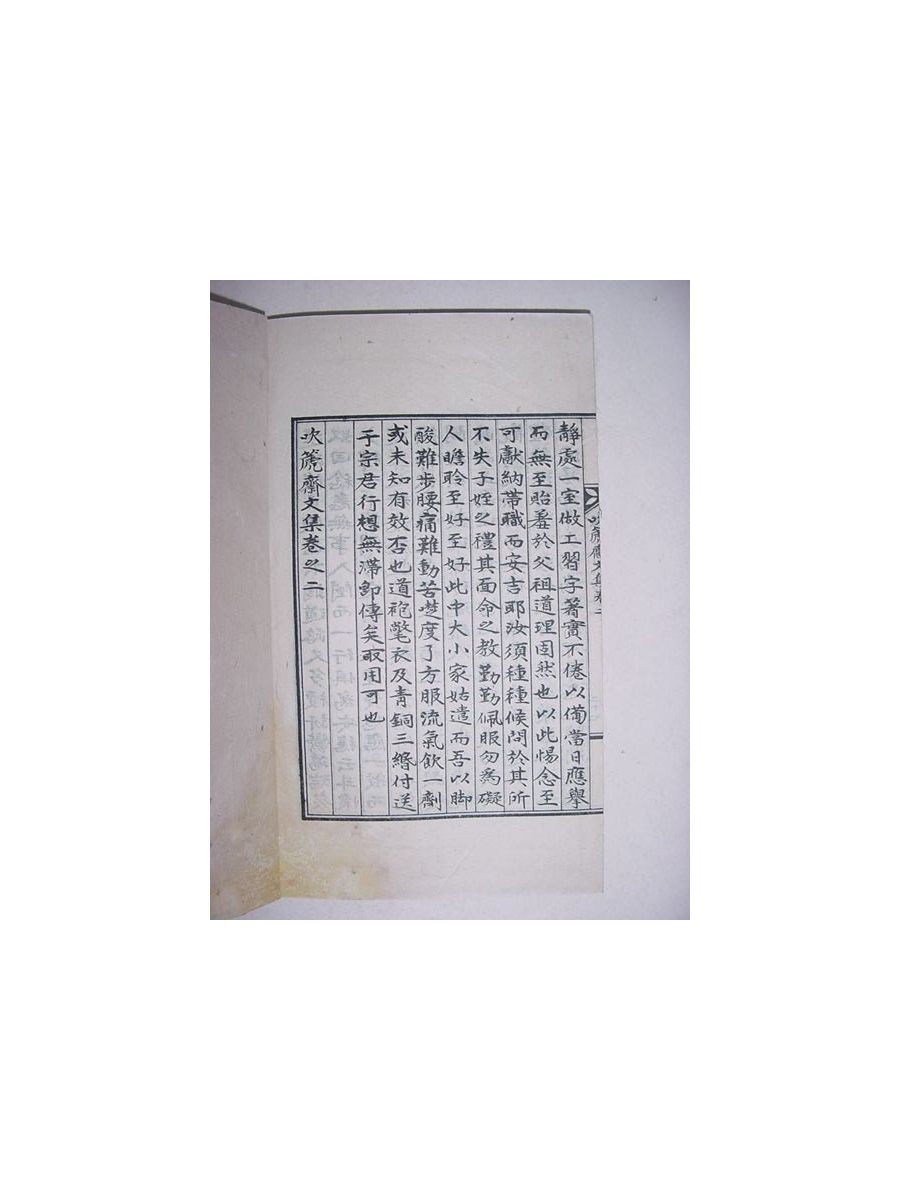 吹篪齋文集卷之二
靜處一室做工習字著實不倦以備當日應擧
而無至貽羞於父祖道理固然也以此惕念至
可獻納帶職而安吉耶汝須種種候問於其所
不失子姪之禮其面命之敎勤勤佩服勿爲礙
人瞻聆至好至好此中大小家姑遣而吾以脚
酸難步腰痛難動苦楚度了方服流氣飮一劑
或未知有效否也道袍氅衣及靑銅三緡付送
于宗君行想無滯卽傳矣取用可也
吹篪齋文集卷之二